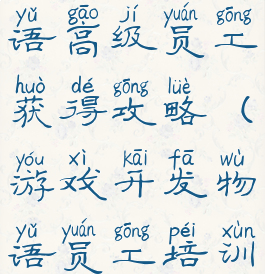 yǔ gāo jí yuán gōng
语高级员工
huò dé gōng lüè
获得攻略（
yóu xì kāi fā wù
游戏开发物
yǔ yuán gōng péi xùn
语员工培训